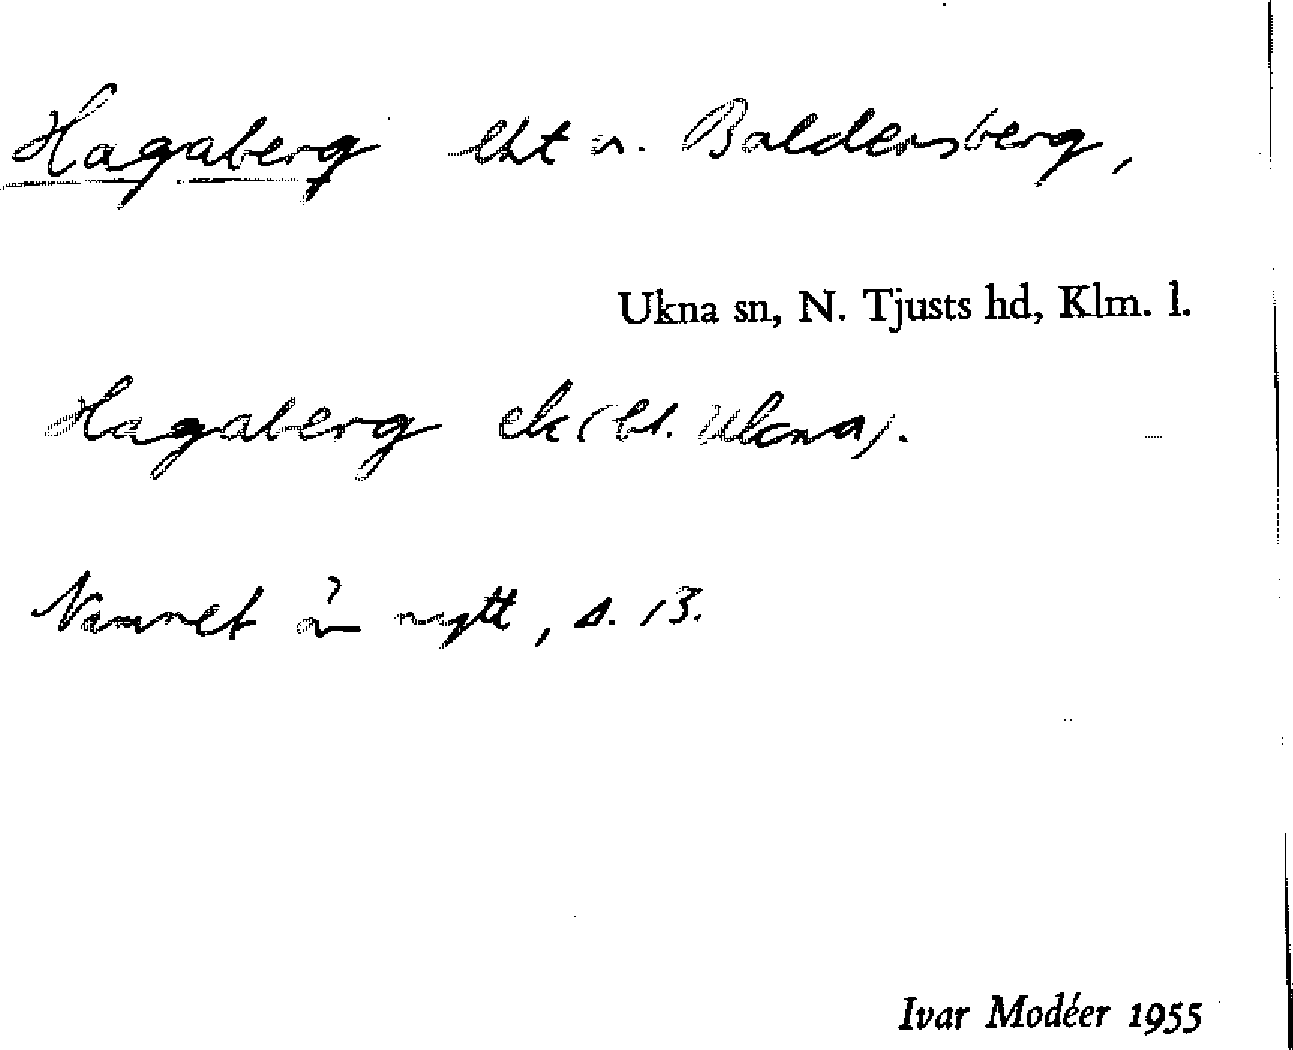 Hagaberg lht u. Baldersberg,
Ukna sn, N. Tjusts hd, Klm. l.
Hagaberg ek (bl. Ukna).
Namnet är nytt, s. 13.
Ivar Modéer 1955